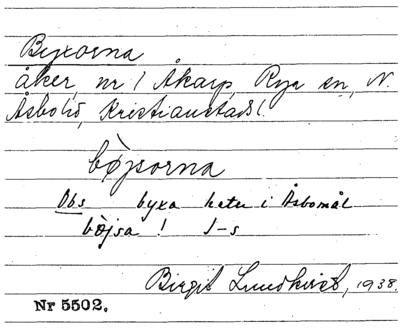 Byxorna
åker, nr 1 Åkarp, Rya sn, N.
Åsbo hd, Kristianstads l.
bøjsorna
Obs byxa heter i Åsbomål
bøjsa! J-s
Birgit Lundkvist, 1938.
Nr 5502.